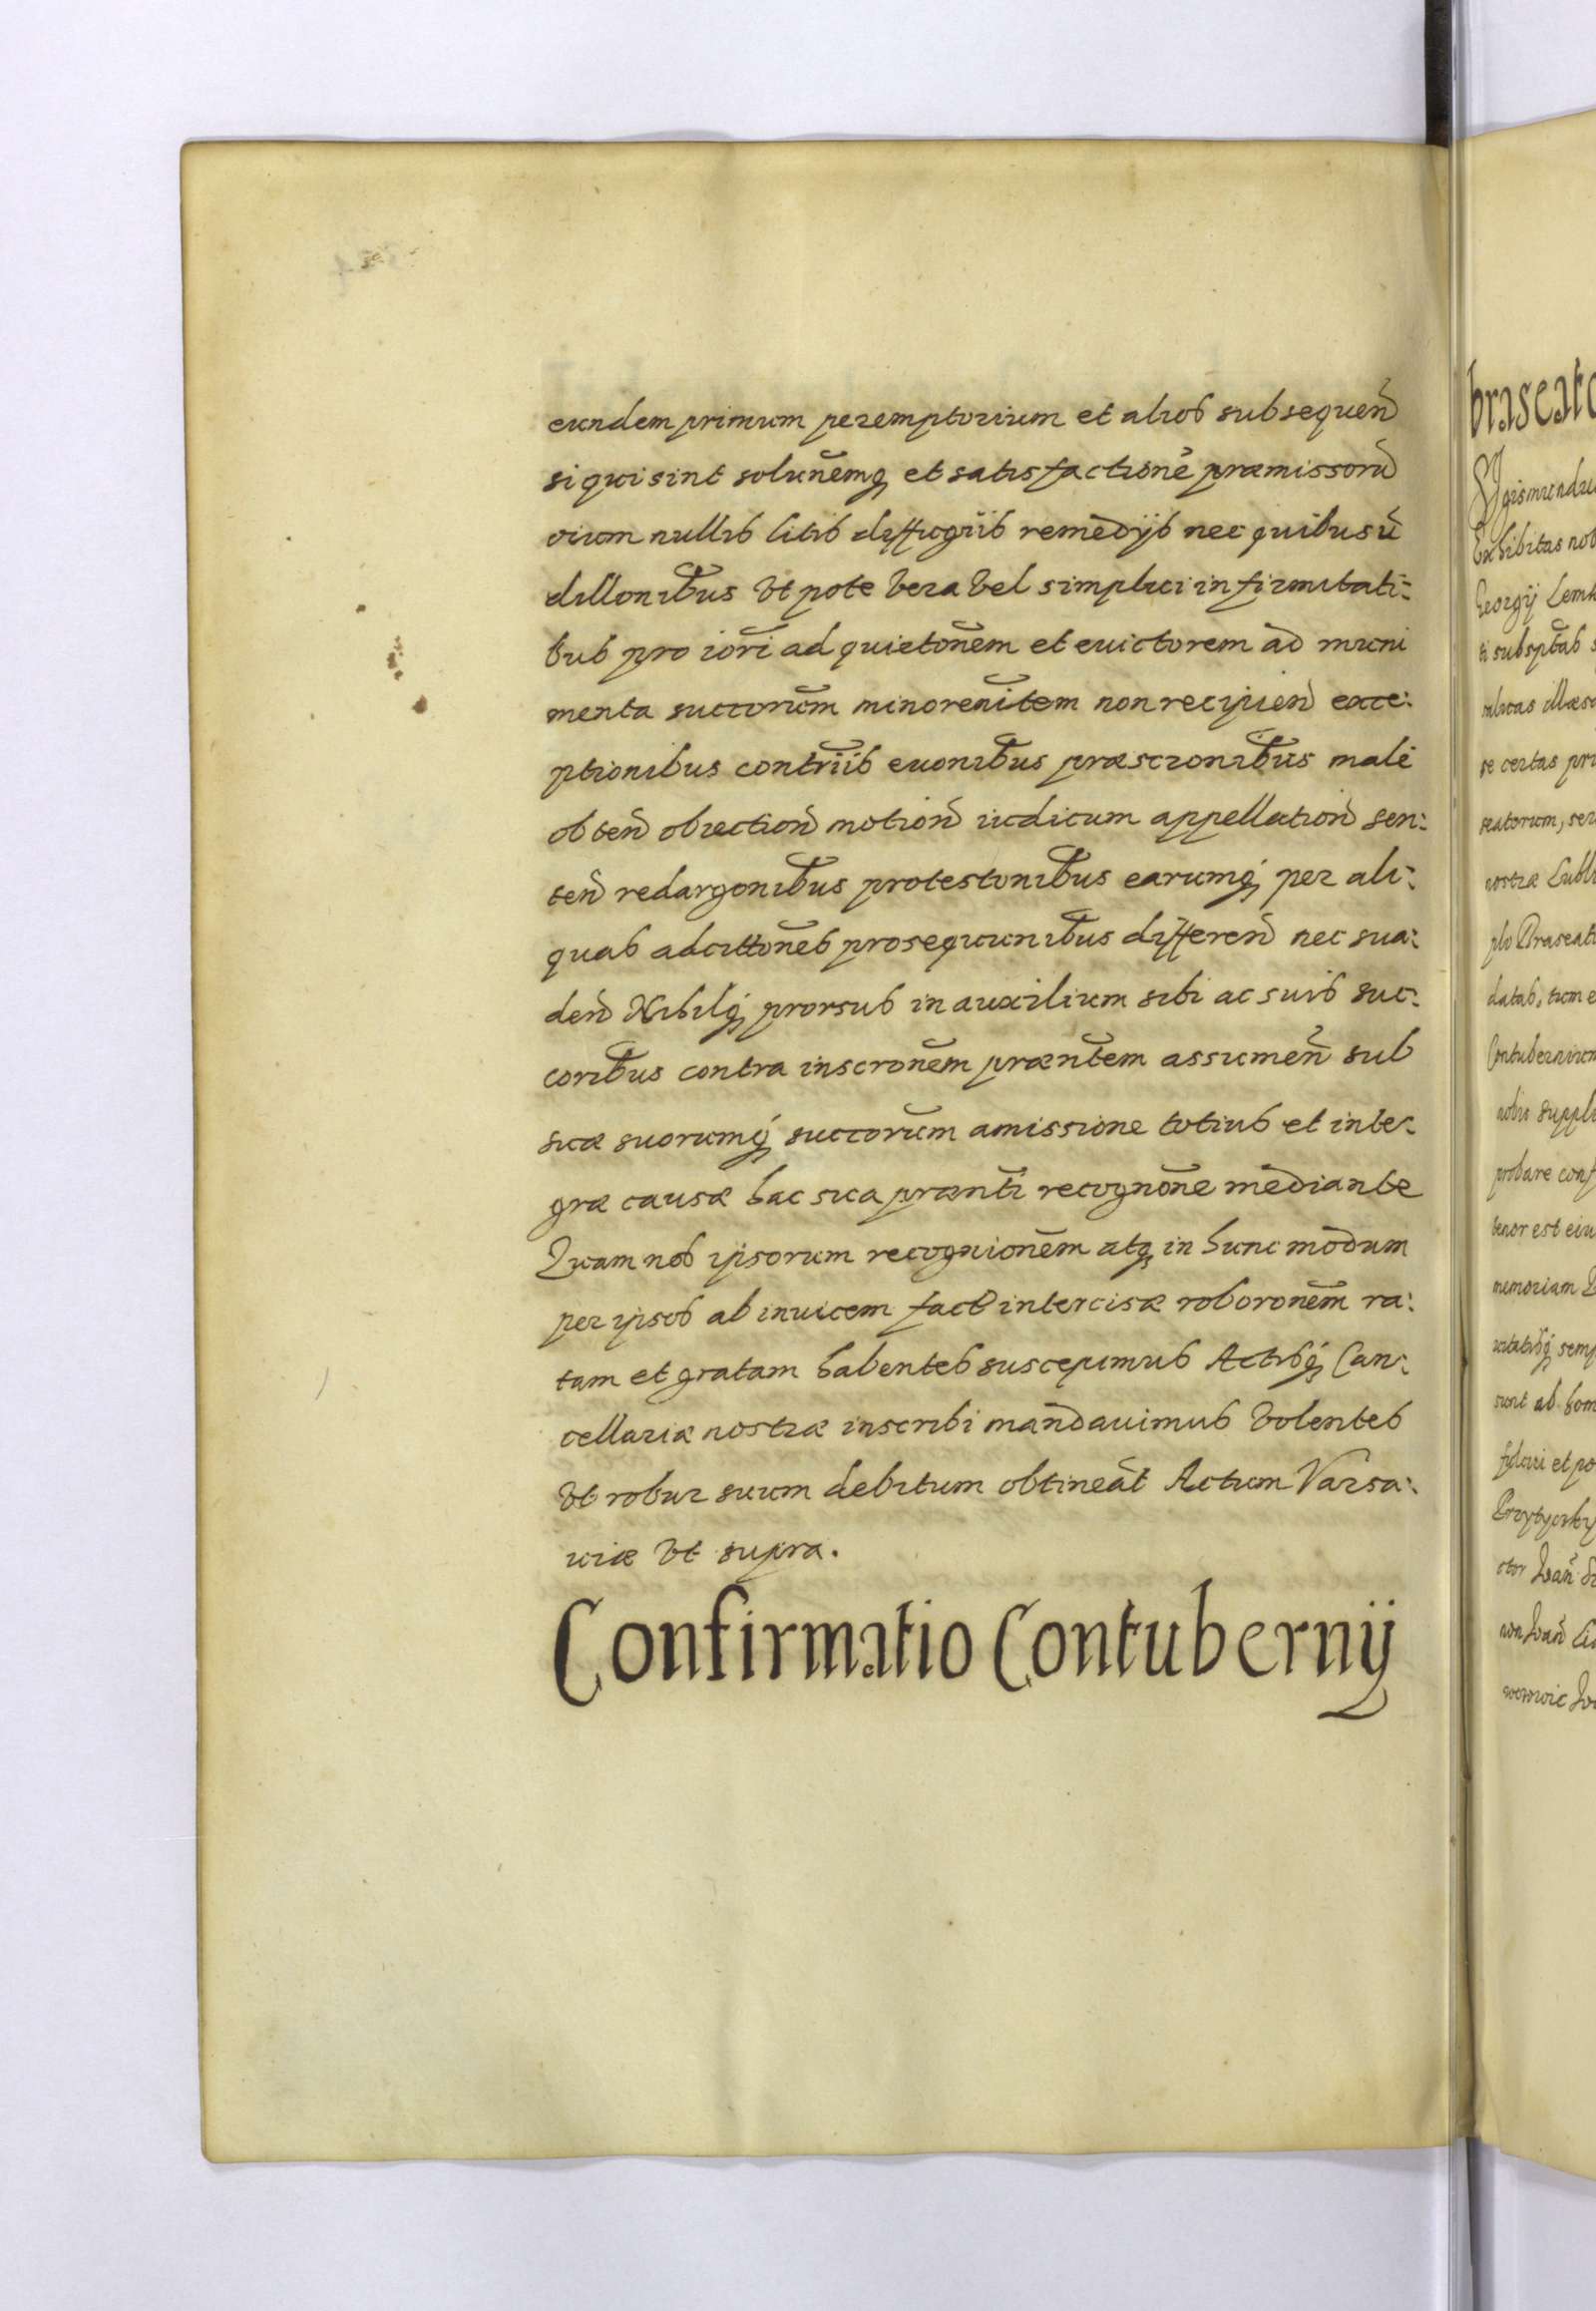 eundem primum peremptorium et alios subsequen̄
si qui sint solun̄emq3 et satisfactionē præmissorū
oium nullis litis diffugiis remedÿs nec quibusū
dillonib̄us vt pote vera vel simplici infirmitati-
bus pro iōri ad quietōnem et euictorem ad muni
menta succorūm minoren̄item non recipien̄ exce:
ptionibus contrīis euonib̄us præscrionib̄us male
obten̄ obiection̄ motion̄ iudicum appellation̄ sen:
ten̄ redargonib̄us protestonib̄us earumq3 per ali:
quas adcittōnes prosequunib̄us differen̄ nec sua:
den̄ Nihilq3 prorsus in auxilium sibi ac suis suc:
corib̄us contra inscronēm præntēm assumen̄ sub
suæ suorumq3 succorūm amissione totius et inte:
græ causæ hac sua præntī recognōne mediante
Quam nos ipsorum recogniōnem atq3 in hunc modum
per ipsos ab inuicem fact intercisæ roboronēm ra:
tam et gratam habentes suscepimus Actisq3 Can:
cellariæ nostræ inscribi mandauimus Volentes
Vt robur suum debitum obtineāt Actum Varsa:
uiæ vt supra.
Confirmatio Contubernÿ
braseato
Exhibitas nob
Georgÿ Lemk
ti subsptas s
se certas pri
seatorum, seu
nostræ Lubli
plo Braseat
datas, tum e
Contubernium
nobis suppli
probare conf
tenor est eiu
memoriam
sunt ab hom